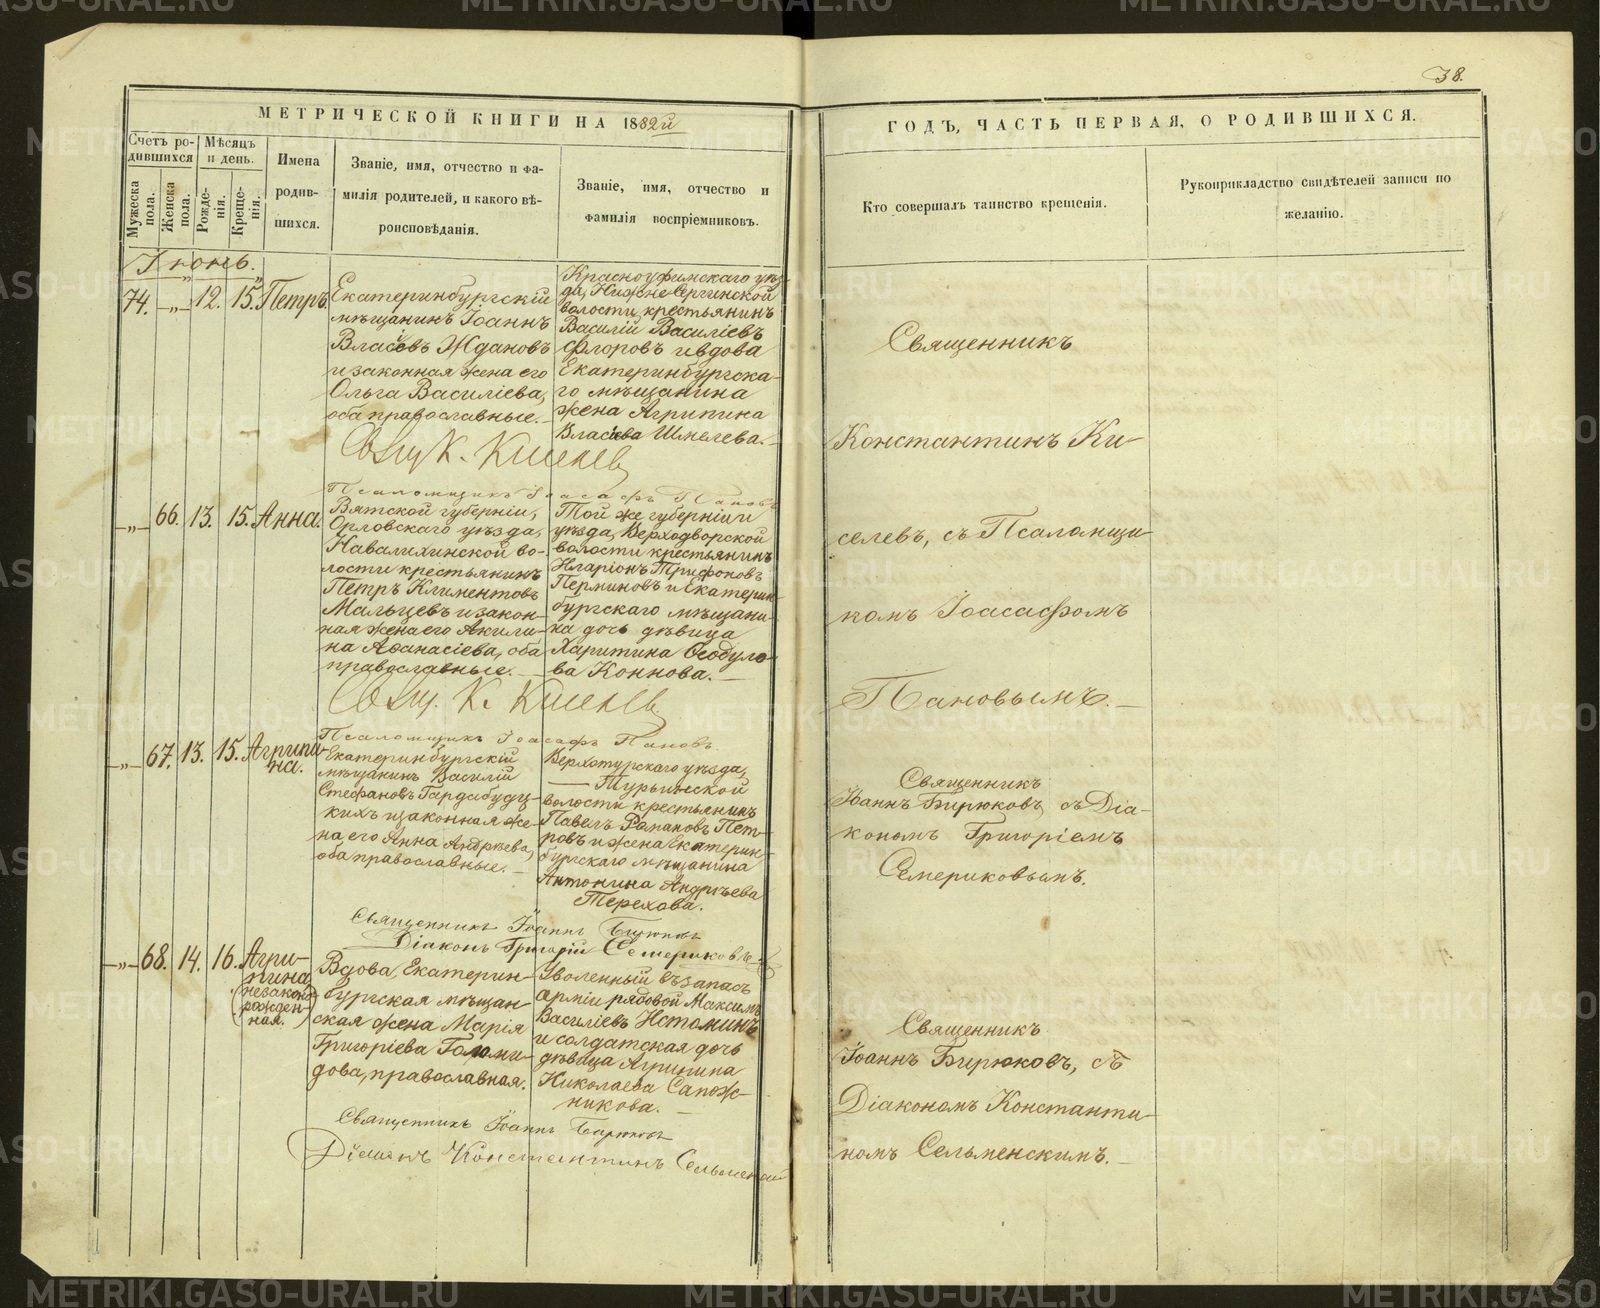 38.
МЕТРИЧЕСКОЙ КНИГИ НА 1882й
ГОДЪ, ЧАСТЬ ПЕРВАЯ, О РОДИВШИХСЯ.
Счетъ ро-
дившихся
Мѣсяцъ
и день.
Мужеска
пола.
Женска
пола.
Рожде-
нія.
Креще-
нія.
Имена
родив-
шихся.
Званіе, имя, отчество и фа-
милія родителей, и какого вѣ-
роисповѣданія.
Званіе, имя, отчество и
фамилія воспріемниковъ.
Кто совершалъ таинство крещенія.
Рукоприкладство свидѣтелей записи по
желанію.
Іюнь.
74. -„- 12. 15. Петръ.
Екатеринбургскій
мѣщанинъ Іоаннъ
Власіевъ Ждановъ
и законная жена его
Ольга Василіева,
оба православные.
Красноуфимскаго уѣз-
да, Нижне Сергинской
волости, крестьянинъ
Василій Василіевъ
Флоровъ и вдова
Екатеринбургска-
го мѣщанина
жена Агрипина
Власіева Шмелева.
Свящ. К. Киселевъ
Псаломщикъ Іоасафъ Пановъ
Священникъ
Константинъ Ки-
селевъ, съ Псаломщи-
комъ Іоасафомъ
Пановымъ.
-„- 66. 13. 15. Анна.
Вятской губерніи,
Орловскаго уѣзда,
Навалихинской во-
лости крестьянинъ
Петръ Климентовъ
Мальцевъ и закон-
ная жена его Акили-
на Аѳанасіева, оба
православные.
Той же губерніи и
уѣзда, Верходворской
волости крестьянинъ
Иларіонъ Трифоновъ
Перминовъ и Екатерин-
бургскаго мѣщани-
на дочь дѣвица
Харитина
Коннова.
Свящ. К. Киселевъ
Псаломщикъ Іоасафъ Пановъ.
-„- 67. 13. 15. Агрипи-
на.
Екатеринбургскій
мѣщанинъ Василій
Стефановъ
и законная же-
на его Анна Андрѣева,
оба православные.
Верхотурскаго уѣзда,
Турьинской
волости крестьянинъ
Павелъ Романовъ Пет-
ровъ и жена Екатерин-
бургскаго мѣщанина
Антонина Андрѣева
Терехова.
Священникъ Іоаннъ Бирюковъ
Діаконъ Григорій Семериковъ
Священникъ
Іоаннъ Бирюковъ, съ Діа-
кономъ Григоріемъ
Семериковымъ.
-„- 68. 14. 16. Агри-
пина
(незаконно-
рожден-
ная.)
Вдова, Екатерин-
бургская мѣщан-
ская жена Марія
Григоріева
православная.
Уволенный въ запасъ
арміи рядовой Максимъ
Василіевъ Истоминъ
и солдатская дочь
дѣвица Агрипина
Николаева Сапож-
никова.
Священникъ Іоаннъ Бирюковъ
Діаконъ Константинъ Сельменскій
Священникъ
Іоаннъ Бирюковъ, съ
Діакономъ Константи-
номъ Сельменскимъ.
METRIKI.GASO-URAL.RU